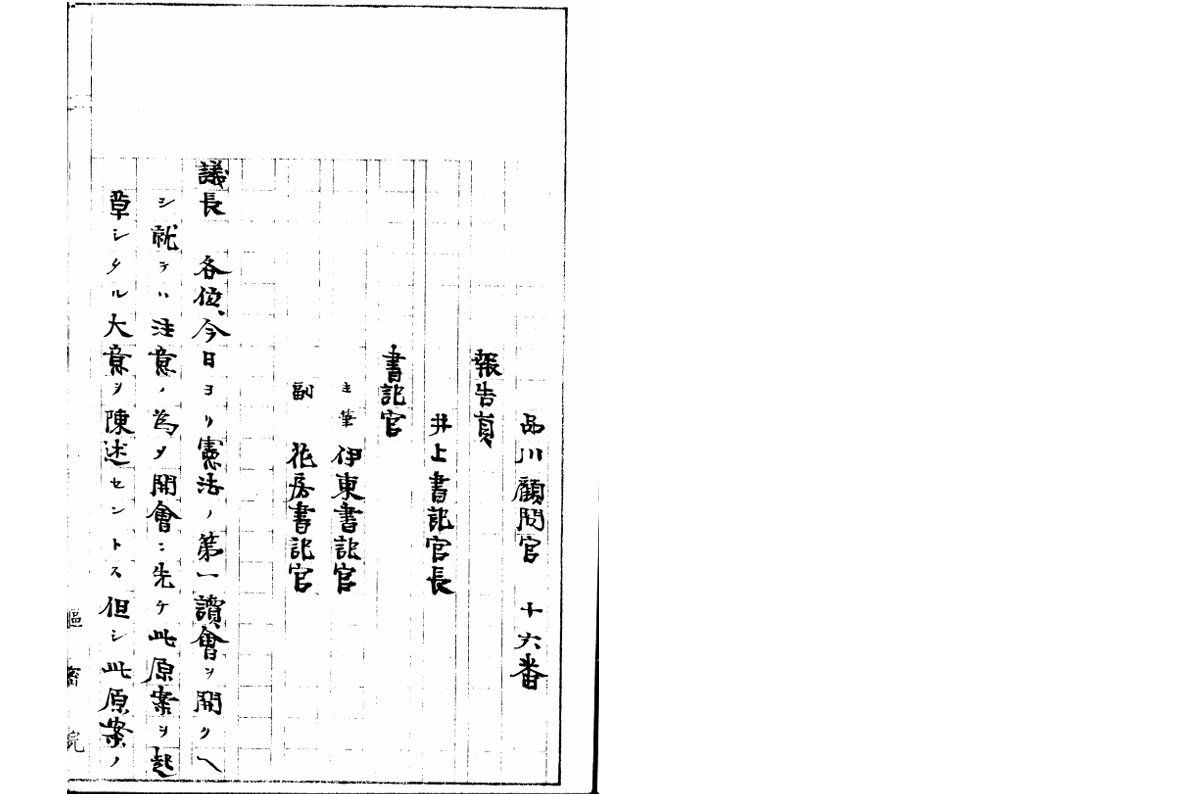 品川顧問官 十六番
報告員
井上書記官長
書記官
主筆 伊東書記官
副 花房書記官
議長 各位、今日ヨリ憲法ノ第一讀會ヲ開クヘ
シ就テハ注意ノ為メ開會ニ先ケ此原案ヲ起
草シタル大意ヲ陳述セントス但シ此原案ノ
樞密院